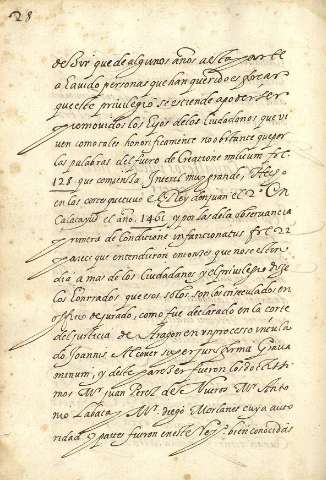 28
de Dezir que de algunos años a esta parte
a hauido personas que han querido esforcar
que este priuilegio se estiende a poder ser
promouidos los hijos de los Ciudadanos que vi
uen como tales honorificamente no obstante que por
las palabras del fuero de Creatione militum fol.
128 que comiença Interes muy grande, Hecho
en las cortes que tuuo el Rey don Juan el 2º en
Calatayud el año. 1461. y por la de la obseruancia
primera de Condicione infancionatus fol. 22
parece que entendieron entonces que no se esten
dia a mas de los Ciudadanos y el priuilegio dize
los honrrados que esos solos son los inseculados en
officio de jurado, como fue declarado en la corte
del justicia de Aragon en vn processo intitula
do Joannis Alcouer super jurisfirma Graua
minum, y deste parecer fueron los doctissi
mos Mº. juan Perez de Nueros Mº. Anto
nio Labata y Mº. diego Morlanes cuya auto
ridad y partes fueron en este Reyº. bien conocidas